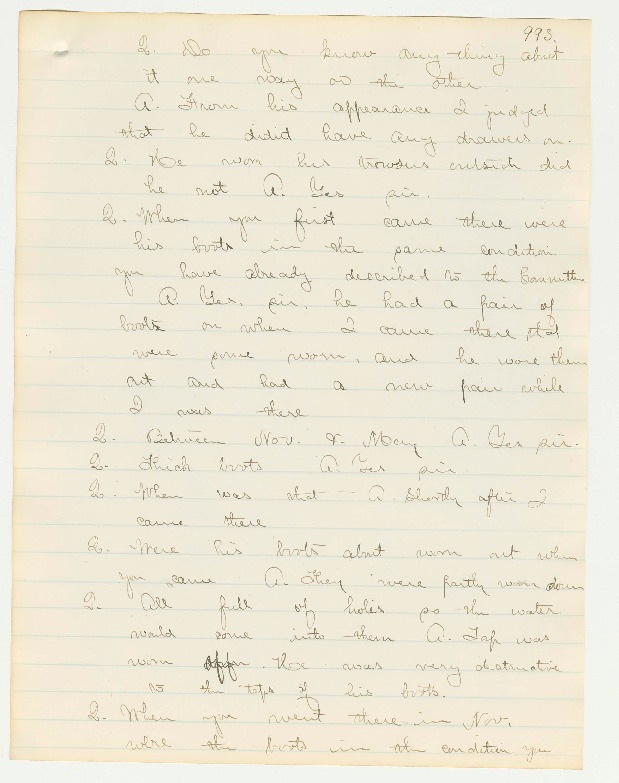 993.
Q. Do you know any-thing about
it one way or the other
A. From his appearance I judged
that he didit have any drawers on.
Q. He worn his trowsers outside did
he not A. Yes sir.
Q. When you first came there were
his boots in the same condition
you have already described to the Committee
A Yes, sir, he had a pair of
boots on when I came there, that
were some worn, and he wore them
out and had a new pair while
I was there
Q. Between Nov. & May A. Yes sir.
Q. Thick boots A Yes sir
Q. When was that A. Shortly after I
came there
Q. Were his boots about worn out when
you came A. They were partly worn down
Q. All full of holes so the water
would come into them A. Tap was
worn off. He was very destructive
to the tops of his boots.
Q. When you went there in Nov.
were the boots in the condition you